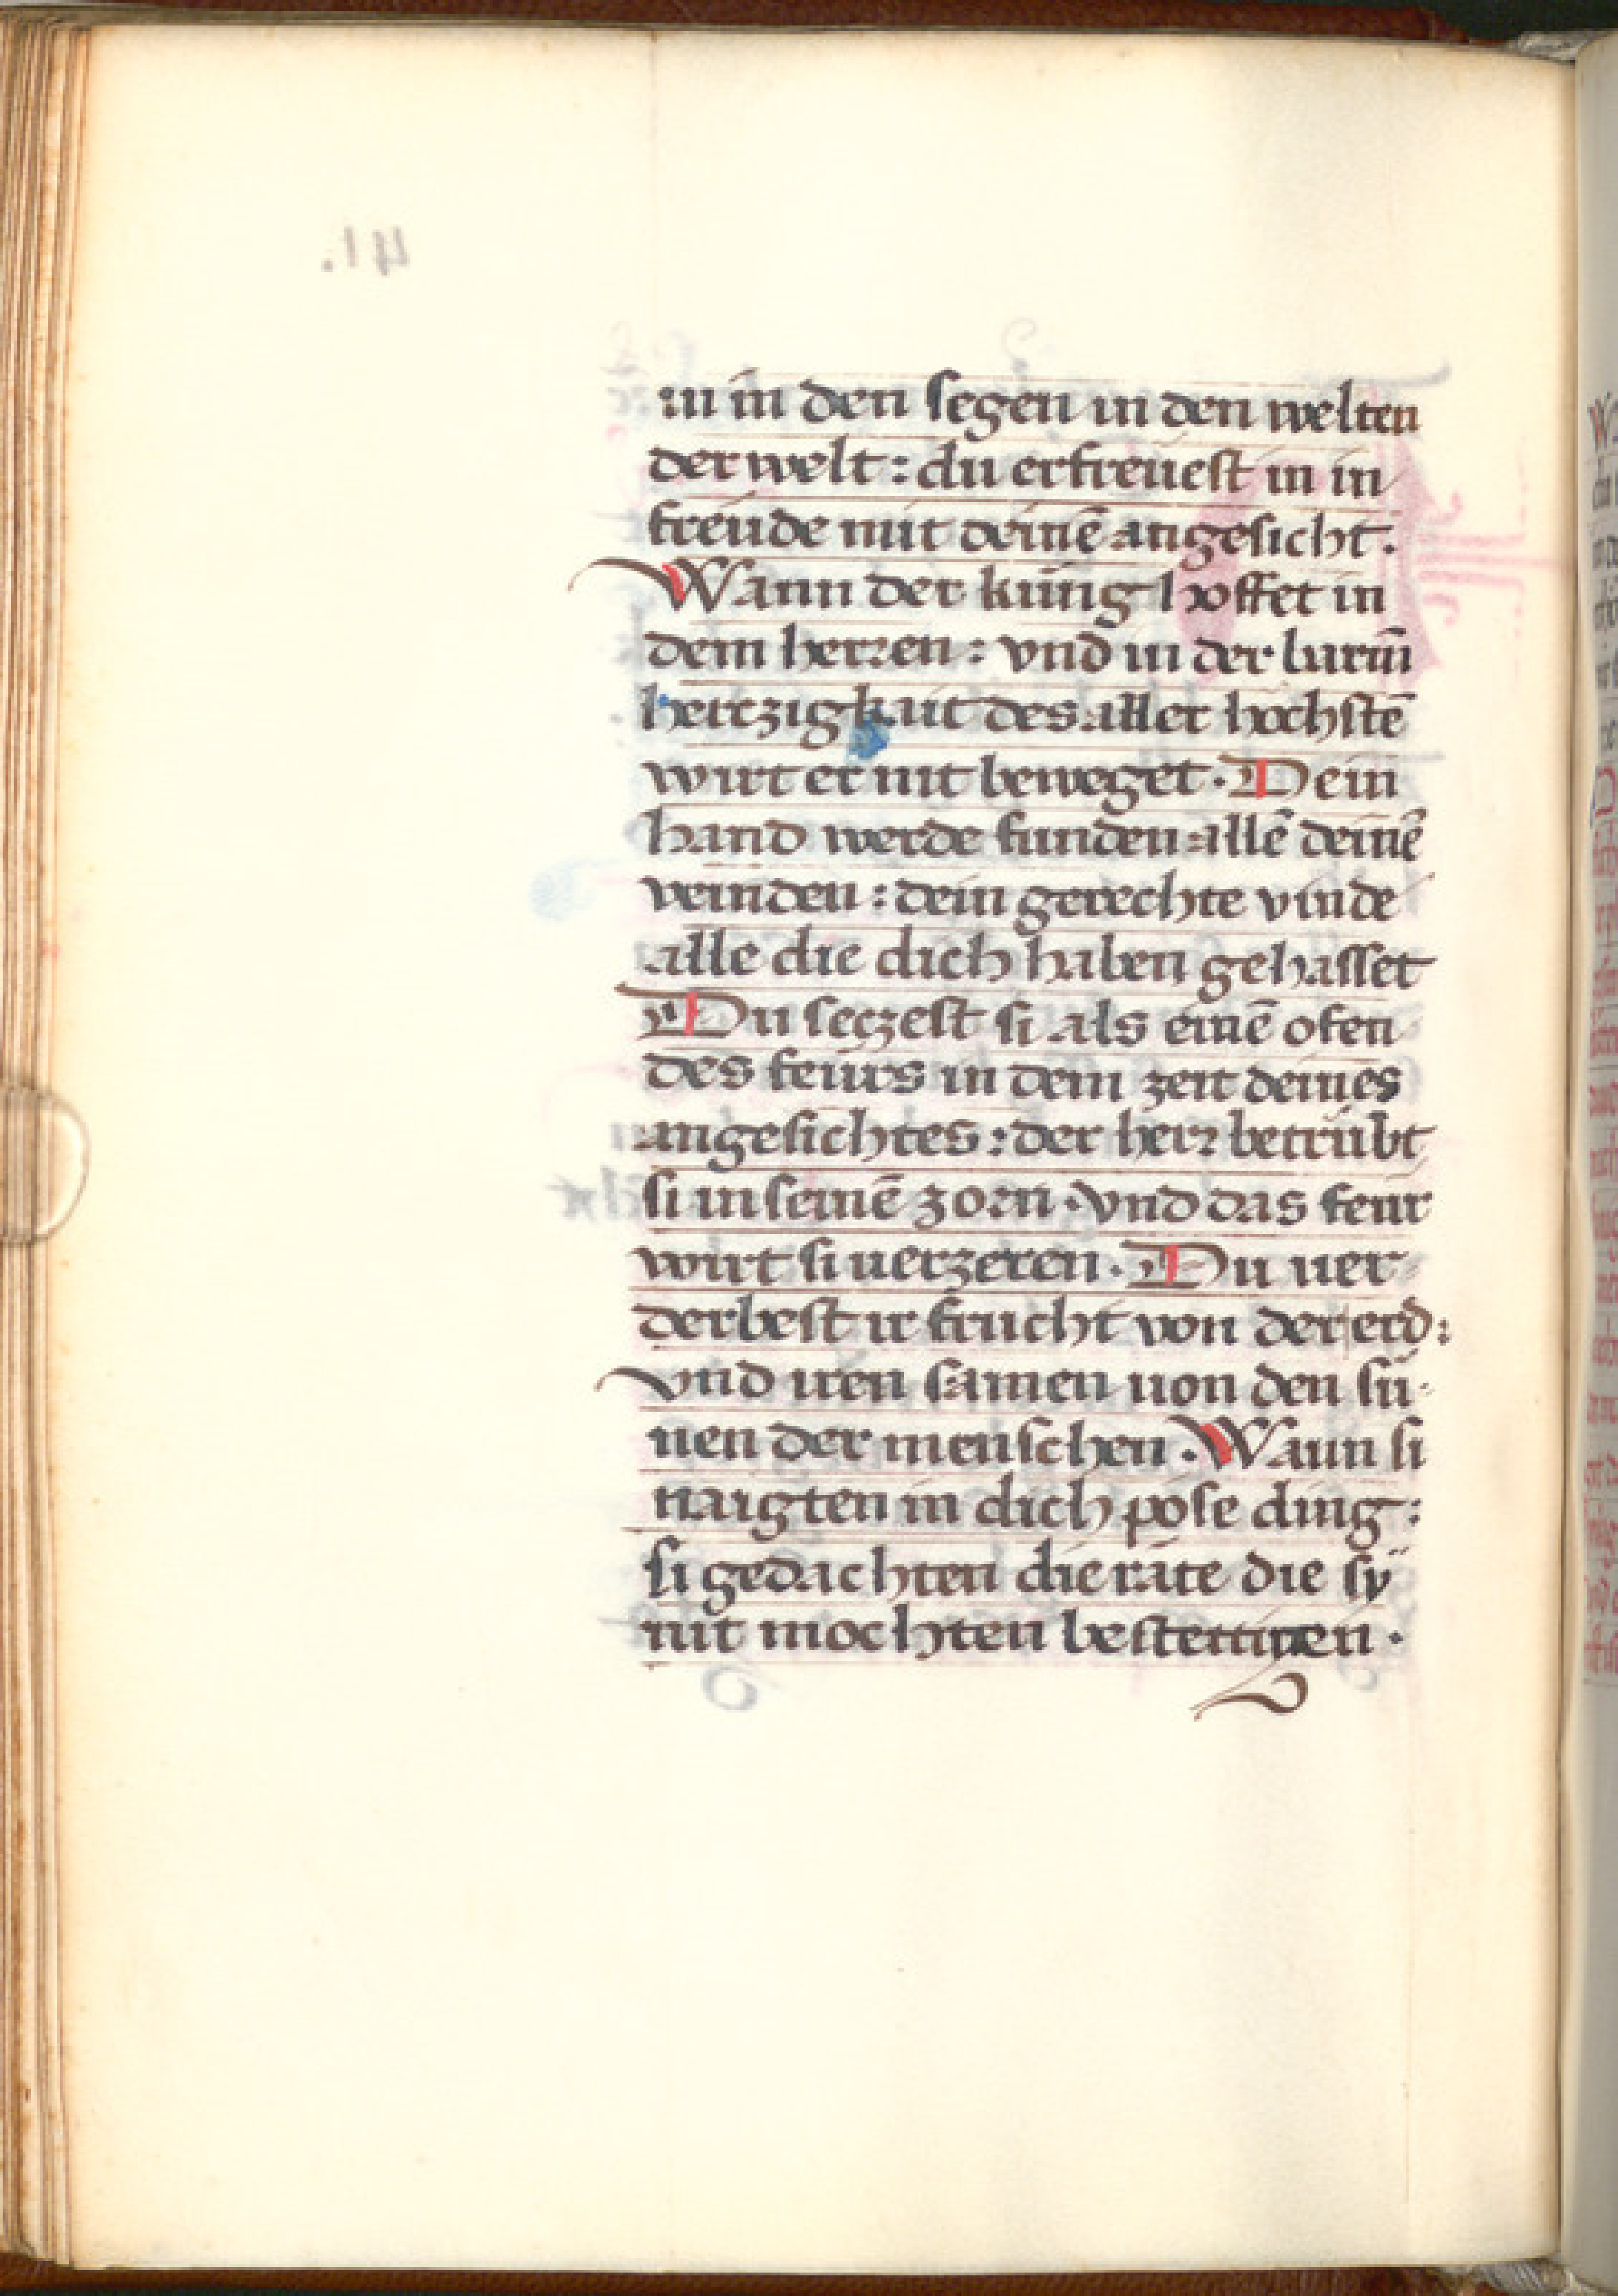 in in den ſegen in den welten
der welt : du erfreüeſt in in
freüde mit deinē angeſicht .
Wann der küng hoffet in
dem herꝛen : vnd in der barm̄
hertzigkait des aller höchſtē
wirt er nit beweget . Dein
hand werde funden allē deinē
veinden : dein gerechte vinde
alle die dich haben gehaſſet
Du ſeczeſt ſi als einē ofen
des feürs in dem zeit deines
angeſichtes : der herꝛ betrübt
ſi in ſeinē zoꝛn . vnd das feür
wirt ſi uerzeren . Du uer
derbeſt ir frucht von der erd :
vnd iren ſamen uon den ſü
nen der menſchen . Wann ſi
naigten in dich pöſe ding :
ſi gedachten die räte die ſÿ
nit mochten beſtettigen .